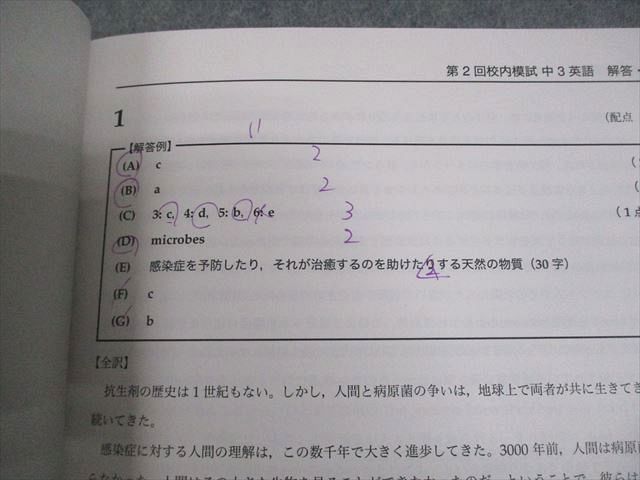 第2回校内模試 中3英語 解答・
1
(配点
11
【解答例】
(A) c 2
(B) a 2
(C) 3: c, 4: d, 5: b, 6: e 3 (1点
(D) microbes 2
(E) 感染症を予防したり，それが治癒するのを助けたりする天然の物質（30字）
2
(F) c
(G) b
【全訳】
抗生剤の歴史は1世紀もない。しかし，人間と病原菌の争いは，地球上で両者が共に生きてき
続いてきた。
感染症に対する人間の理解は，この数千年で大きく進歩してきた。3000年前，人間は病原